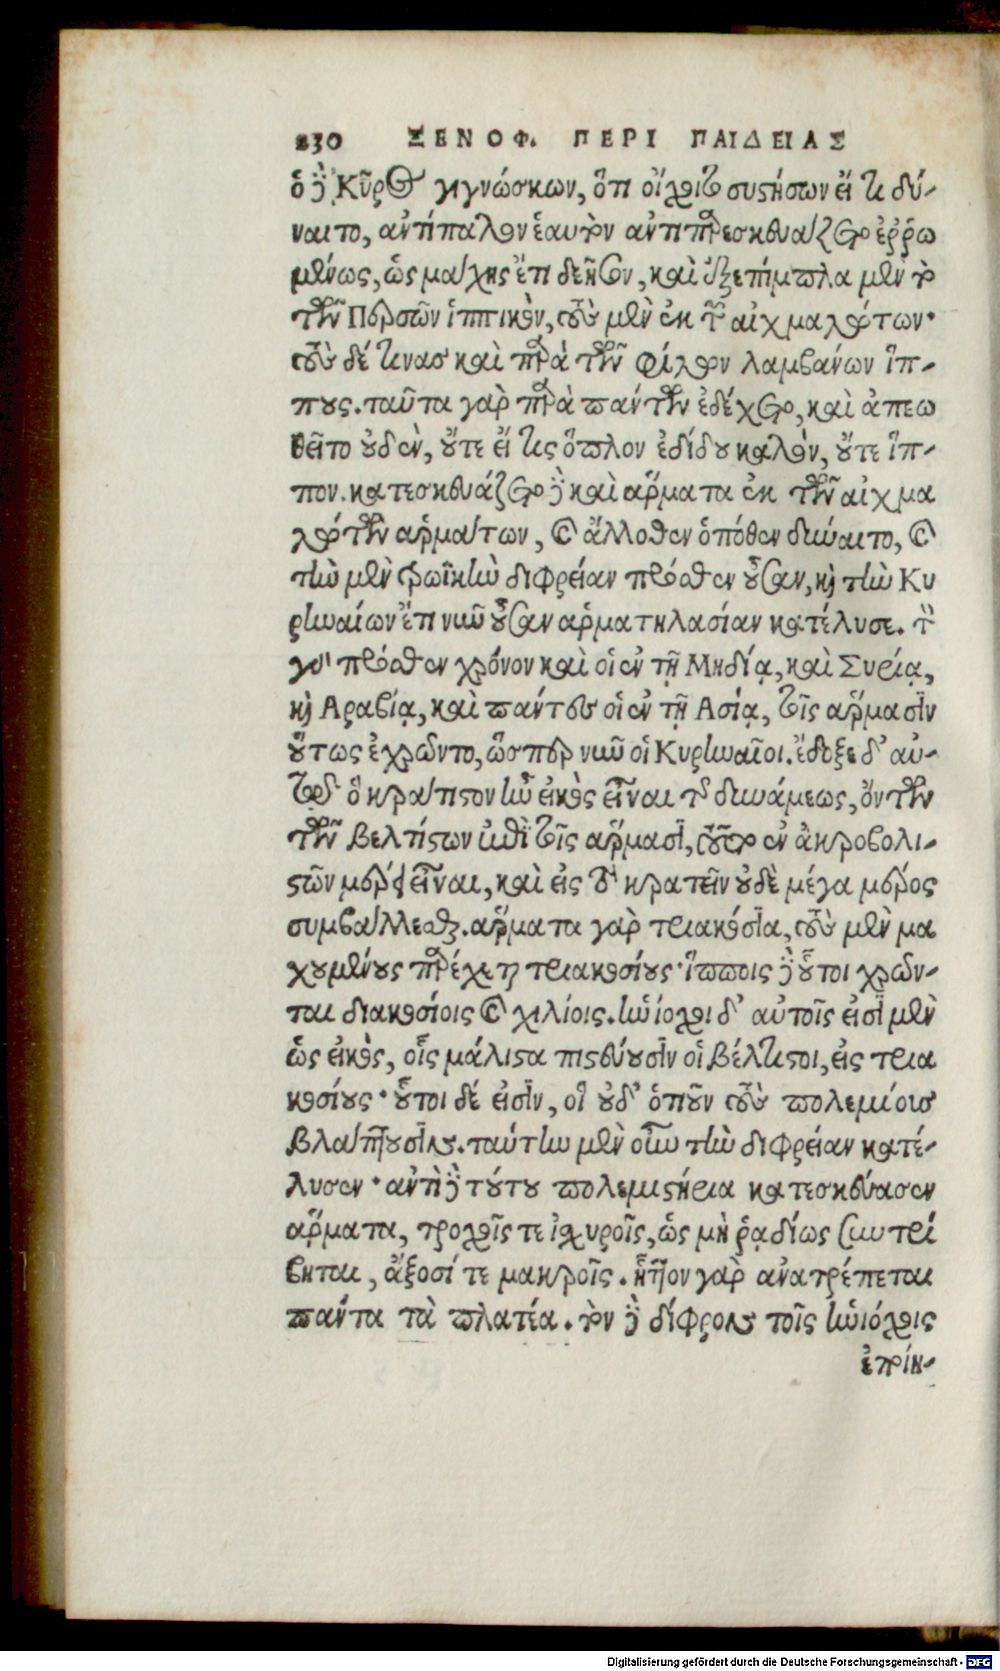 230 ΞΕΝΟΦ. ΠΕΡΙ ΠΑΙΔΕΙΑΣ
ὁ δὲ Κῦρος γιγνώσκων, ὅτι οἴχοιτο συστήσων εἴ τι δύ-
ναιτο, ἀντίπαλον ἑαυτὸν ἀντιπαρεσκευάζετο ἐῤῥω
μένως, ὡς μάχης ἔτι δεῆσον, καὶ ἐξεπίμπλα μὲν τὸ
τῶν Περσῶν ἱππικὸν, τοὺς μὲν ἐκ τῶν αἰχμαλώτων·
τοὺς δέ τινας καὶ παρὰ τῶν φίλων λαμβάνων ἵπ-
πους. ταῦτα γὰρ παρὰ πάντων ἐδέχετο, καὶ ἀπεω
θεῖτο οὐδὲν, οὔτε εἴ τις ὅπλον ἐδίδου καλὸν, οὔτε ἵπ-
πον. κατεσκευάζετο δὲ καὶ ἅρματα ἐκ τῶν αἰχμα
λώτων ἁρμάτων, καὶ ἄλλοθεν ὁπόθεν δύναιτο, καὶ
τὴν μὲν τρωϊκὴν διφρείαν πρόσθεν οὖσαν, καὶ τὴν Κυ
ρηναίων ἔτι νῦν οὖσαν ἁρματηλασίαν κατέλυσε. τὸν
γὰρ πρόσθεν χρόνον καὶ οἱ ἐν τῇ Μηδίᾳ, καὶ Συρίᾳ,
καὶ Αραβίᾳ, καὶ πάντες οἱ ἐν τῇ Ασίᾳ, τοῖς ἅρμασιν
οὕτως ἐχρῶντο, ὥσπερ νῦν οἱ Κυρηναῖοι. ἔδοξε δ' αὐ-
τῷ ὃ κράτιστον ἦν εἰκὸς εἶναι τῆς δυνάμεως, ὄντων
τῶν βελτίστων ἐπὶ τοῖς ἅρμασι, τοῦτο ἐν ἀκροβολι-
στῶν μέρει εἶναι, καὶ εἰς τὸ κρατεῖν οὐδὲ μέγα μέρος
συμβάλλεσθαι. ἅρματα γὰρ τριακόσια, τοὺς μὲν μα
χουμένους παρέχεται τριακοσίους· ἵπποις δὲ οὗτοι χρῶν-
ται διακοσίοις καὶ χιλίοις. ἡνίοχοι δ' αὐτοῖς εἰσὶ μὲν
ὡς εἰκὸς, οἷς μάλιστα πιστεύουσιν οἱ βέλτιστοι, εἰς τρια
κοσίους· οὗτοι δέ εἰσιν, οἳ οὐδ' ὁτιοῦν τοὺς πολεμίους
βλάπτουσιν. ταύτην μὲν οὖν τὴν διφρείαν κατέ-
λυσεν· ἀντὶ δὲ τούτου πολεμιστήρια κατεσκεύασεν
ἅρματα, τροχοῖς τε ἰσχυροῖς, ὡς μὴ ῥᾳδίως συντρί
βηται, ἄξοσί τε μακροῖς. ἧττον γὰρ ἀνατρέπεται
πάντα τὰ πλατέα. τὸν δὲ δίφρον τοῖς ἡνιόχοις
ἐποίη-
Digitalisierung gefördert durch die Deutsche Forschungsgemeinschaft - DFG